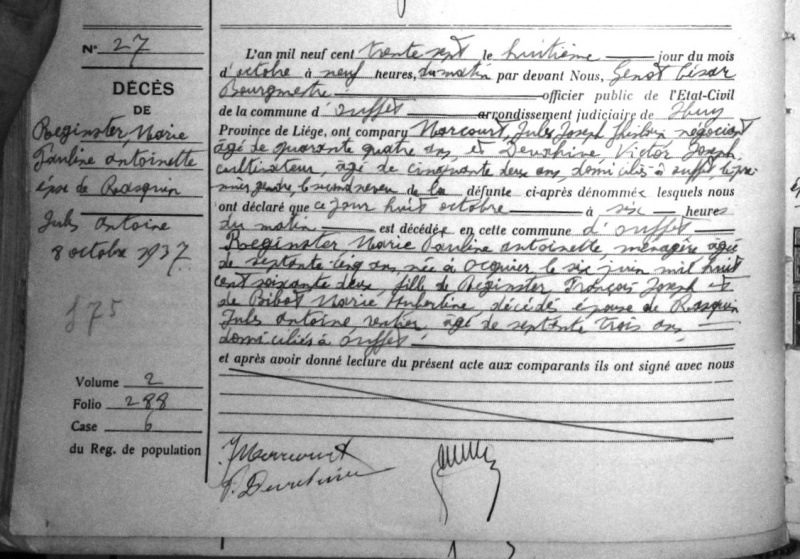 N° 27
DÉCÈS
DE
Reginster, Marie
Pauline Antoinette
épse de Rasquin
Jules Antoine
8 octobre 1937
175
Volume 2
Folio 288
Case 6
du Reg. de population
L'an mil neuf cent trente sept le huitième jour du mois
d'octobre à neuf heures, du matin par devant Nous, Genot César
Bourgmestre officier public de l'Etat-Civil
de la commune d'Ouffet arrondissement judiciaire de Huy
Province de Liège, ont comparu Marcourt, Jules Joseph négociant
âgé de quarante quatre ans et Victor Joseph
cultivateur, âgé de cinquante deux ans, domiciliés à Ouffet le pre-
mier gendre, le second neveu de la défunte ci-après dénommée lesquels nous
ont déclaré que ce jour huit octobre à six heures
du matin est décédée en cette commune d'Ouffet
Reginster Marie Pauline Antoinette ménagère âgée
de septante cinq ans, née à Ocquier le six juin mil huit
cent soixante deux, fille de Reginster, François Joseph et
de Bibot Marie Hubertine, décédés épouse de Rasquin
Jules Antoine rentier, âgé de septante trois ans
domiciliés à Ouffet
et après avoir donné lecture du présent acte aux comparants ils ont signé avec nous
J Marcourt